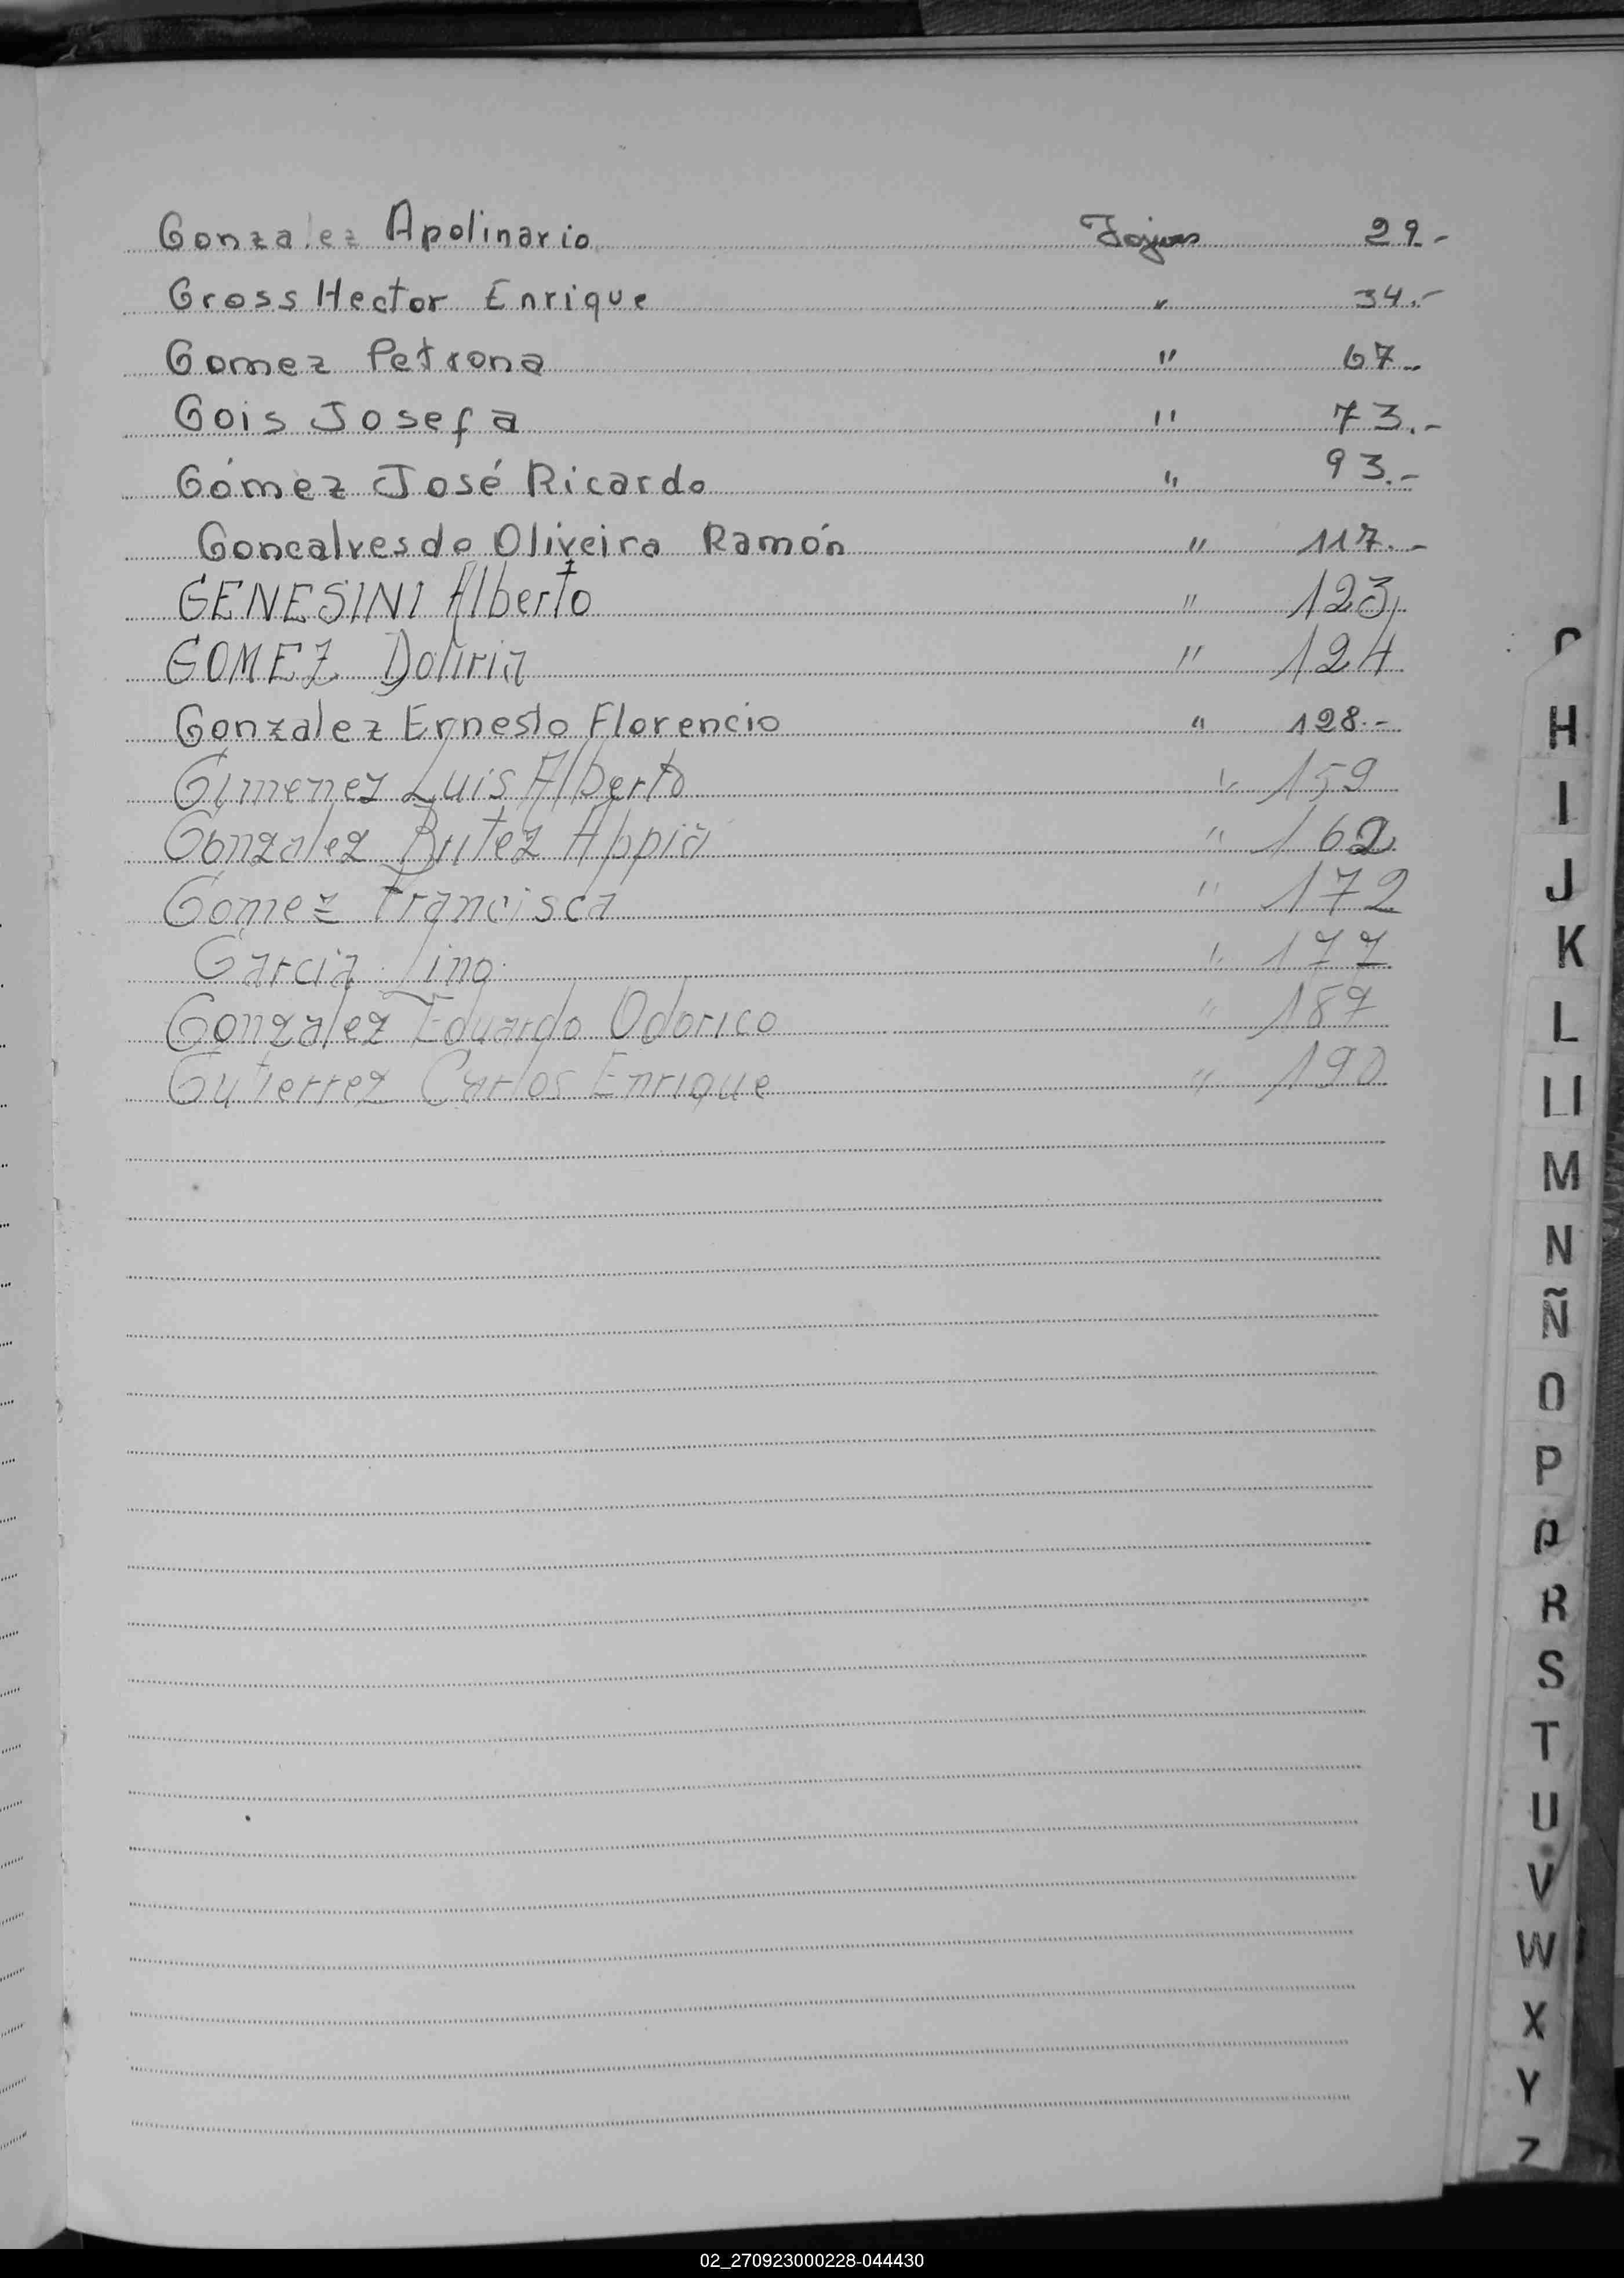 Gonzalez Apolinario Fojas 29.-
Gross Hector Enrique " 34.-
Gomez Petrona " 67.-
Gois Josefa " 73.-
Gómez José Ricardo " 93.-
Goncalves do Oliveira Ramón " 117.-
GENESINI Alberto " 123,
GOMEZ " 124
Gonzalez Ernesto Florencio " 128.-
Gimenez Luis Alberto " 159
Gonzalez Britez Appia " 162
Gomez Francisca " 172
Garcia Lino " 177
Gonzalez Eduardo Odorico " 187
Gutierrez Carlos Enrique " 190
H
I
J
K
L
Ll
M
N
Ñ
O
P
Q
R
S
T
U
V
W
X
Y
Z
02_270923000228-044430